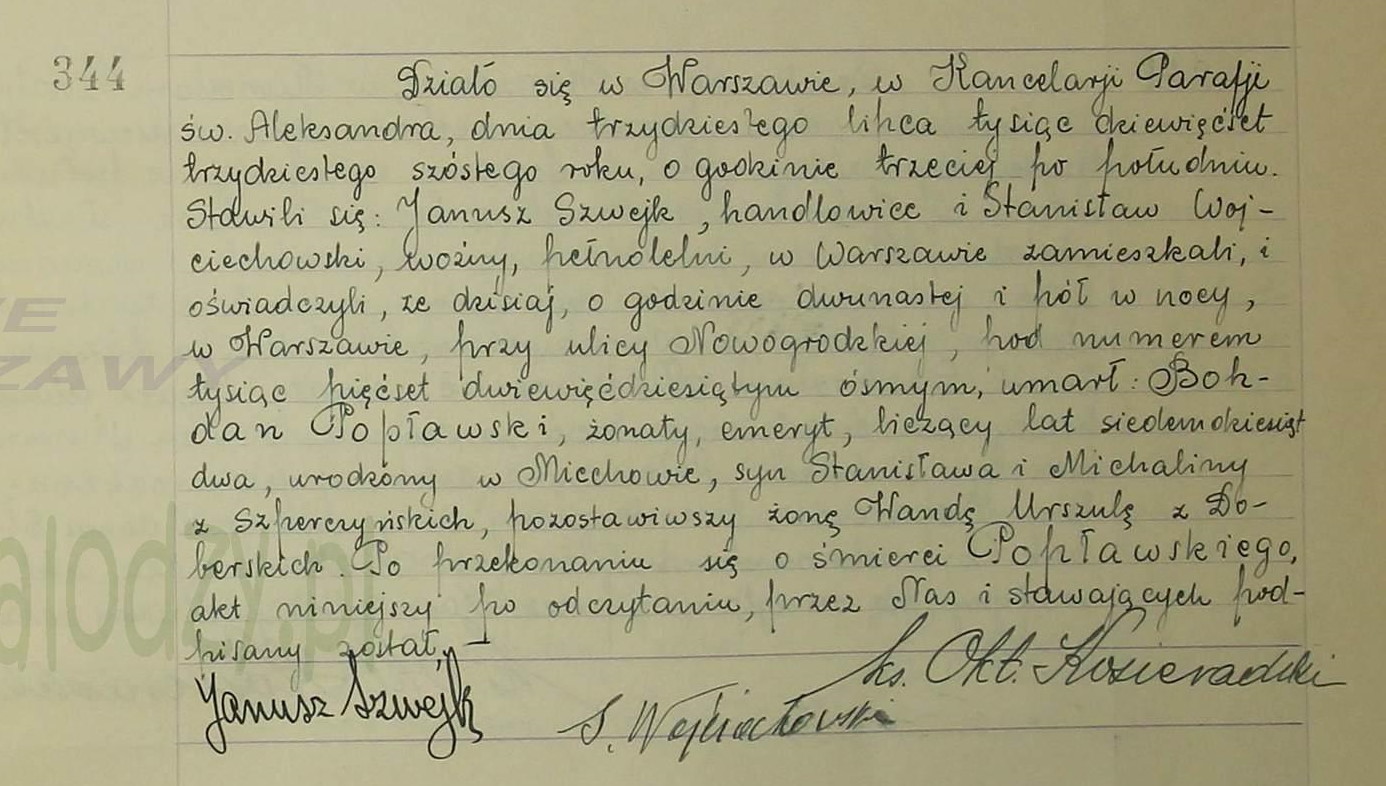 344
Działo się w Warszawie, w Kancelarji Parafji
św. Aleksandra, dnia trzydziestego lipca tysiąc dziewięćset
trzydziestego szóstego roku, o godzinie trzeciej po południu.
Stawili się: Janusz Szwejk, handlowiec i Stanisław Woj-
ciechowski, woźny, pełnoletni, w Warszawie zamieszkali, i
oświadczyli, że dzisiaj, o godzinie dwunastej i pół w nocy,
w Warszawie, przy ulicy Nowogrodzkiej, pod numerem
tysiąc pięćset dwiewięćdziesiątym ósmym, umarł: Boh-
dan Popławski, żonaty, emeryt, liczący lat siedemdziesiąt
dwa, urodzony w Miechowie, syn Stanisława i Michaliny
z Szperczyńskich, pozostawiwszy żonę Wandę Urszulę z Do-
berskich. Po przekonaniu się o śmierci Popławskiego,
akt niniejszy po odczytaniu, przez Nas i stawających pod-
pisany został. –
ks. Okt. Kosieradzki
Janusz Szwejk
S. Wojciechowski
ZAWY
alodzy.pl